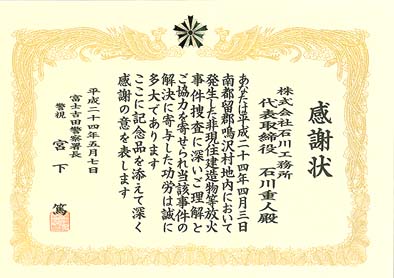 感謝状
株式会社石川工務所
代表取締役 石川重人殿
あなたは平成二十四年四月三日
南都留郡鳴沢村地内において
発生した非現住建造物等放火
事件捜査に深いご理解と
ご協力を寄せられ当該事件の
解決に寄与した功労は誠に
多大であります
ここに記念品を添えて深く
感謝の意を表します
平成二十四年五月七日
富士吉田警察署長
警視 宮下 篤